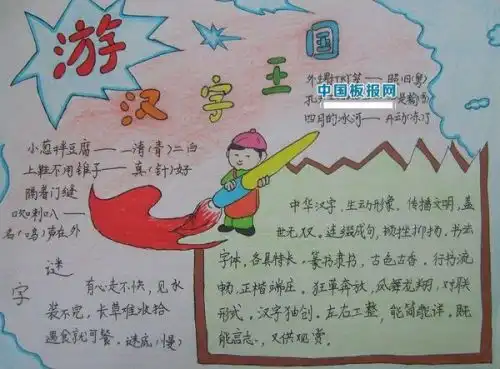 游汉字王国
外甥打灯笼——照旧(舅)
中国板报网
四月的冰河——开动(冻)了
小葱拌豆腐——一清(青)二白
上鞋不用锥子——真(针)好
隔着门缝
吹喇叭——
名(鸣)声在外
字谜
有心走不快,见水
装不完,长草难收拾
遇食就可餐。谜底:(慢)
中华汉字,生动形象。传播文明,盖
世无双。连缀成句,抑挫抑扬。书法
字体,各具特长。篆书隶书,古色古香。行书流
畅,正楷端庄。狂草奔放,凤舞龙翔。对联
形式,汉字独创。左右工整,能简能详。既
能言志,又供观赏。